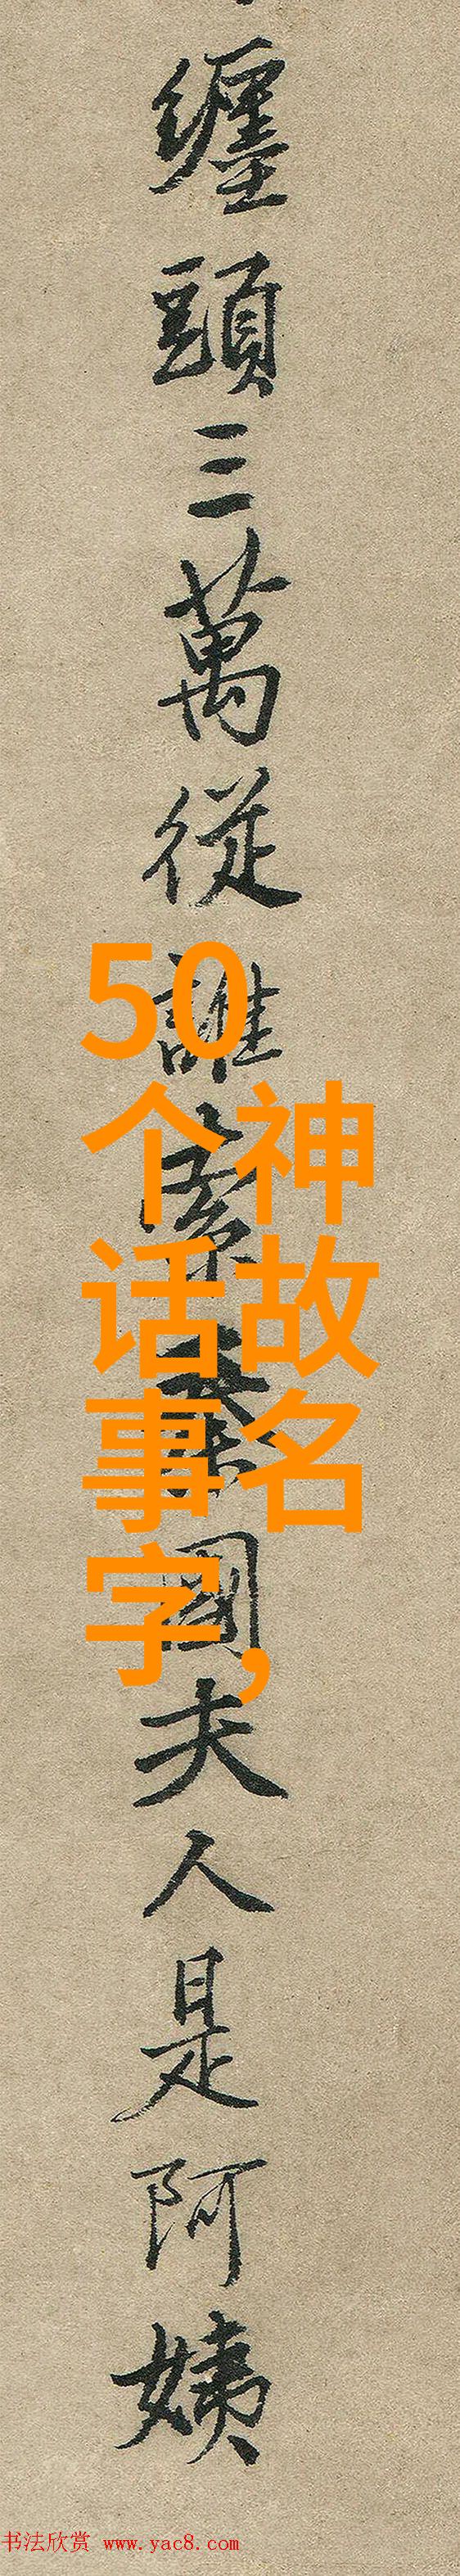 纏頭三萬從誰索秦國夫人是阿姨
50
个神
话故
事名
字,
书法欣赏 www.yac8.com